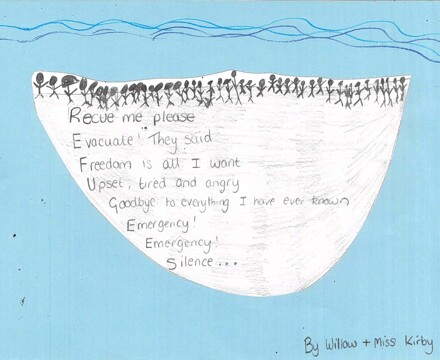 Recue me please
Evacuate! They said
Freedom is all I want
Upset, tired and angry
Goodbye to everything I have ever known
Emergency!
Emergency!
Silence...
By Willow + Miss Kirby